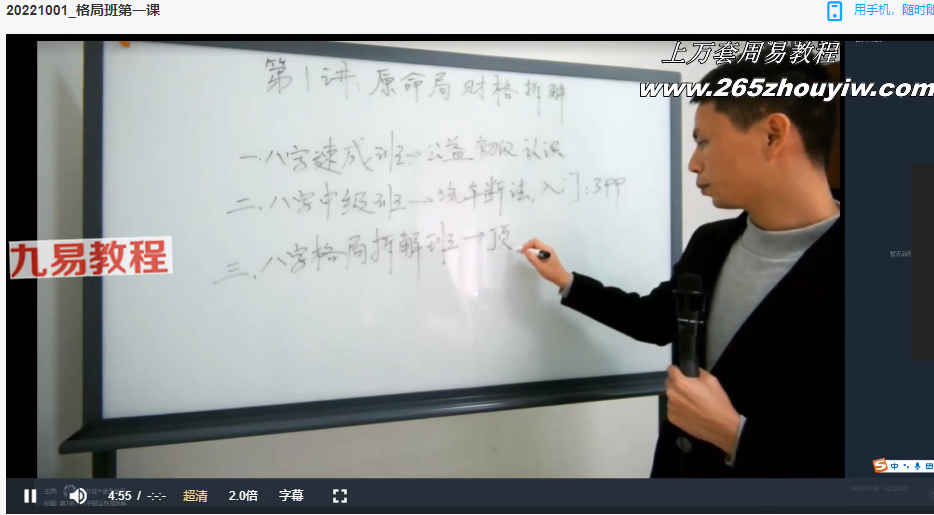 20221001_格局班第一课
用手机，随时随
上万套周易教程
www.265zhouyiw.com
第1讲、原命局财格拆解
一.八字速成班→公益初级认识
二.八字中级班→汽车断法,入门:399
三.八字格局拆解班→顶
九易教程
中
4:55 / -:-:-
超清
2.0倍
字幕